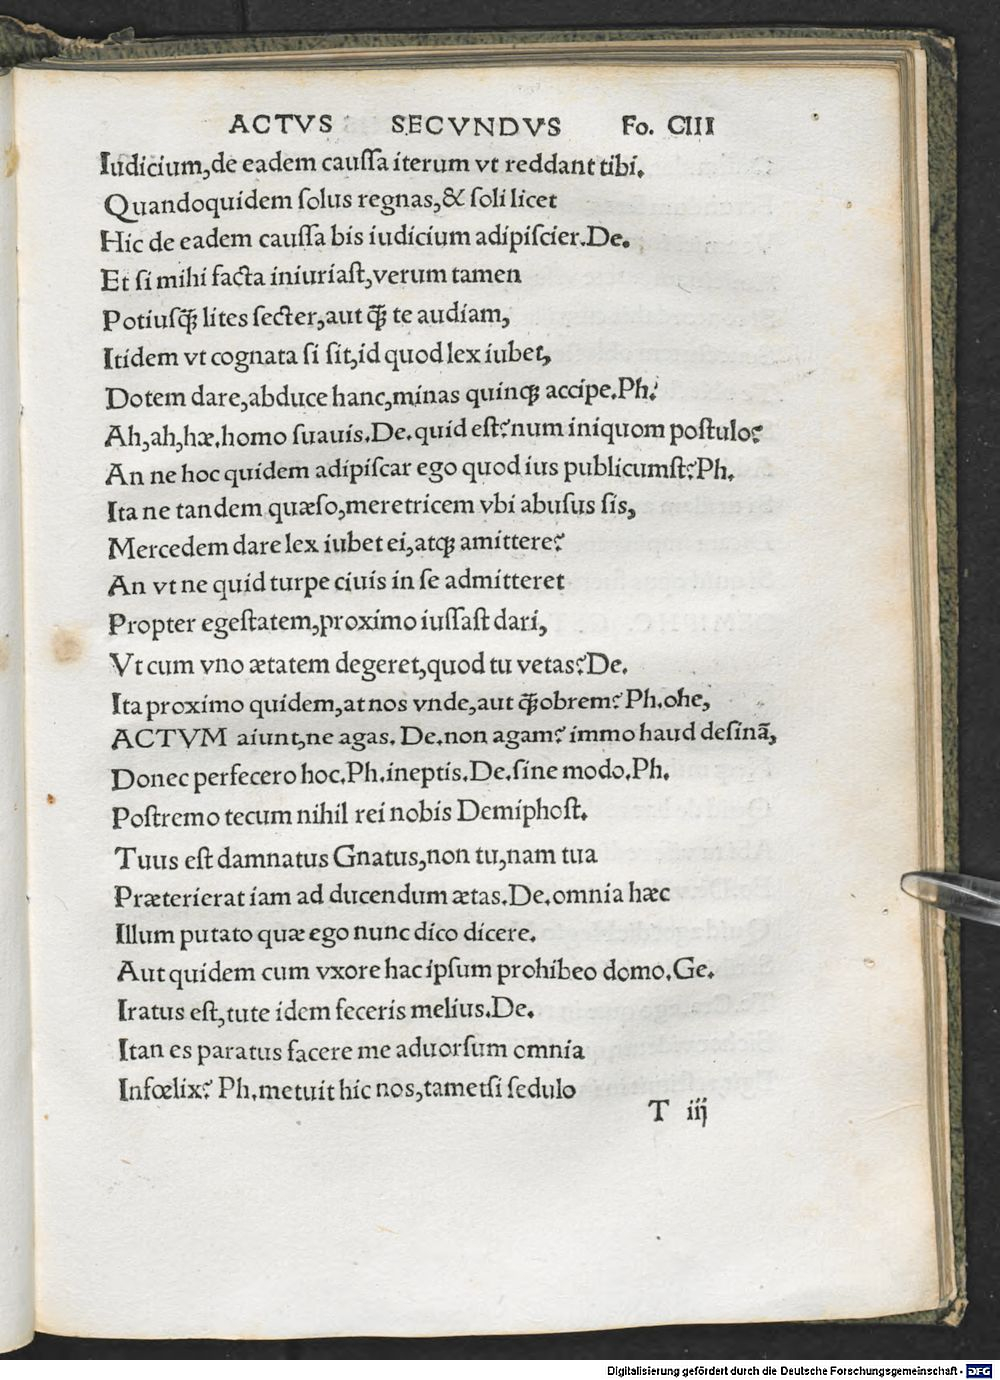 ACTVS SECVNDVS Fo. CIII
Iudicium,de eadem cauſſa iterum vt reddant tibi.
Quandoquidem ſolus regnas,& ſoli licet
Hic de eadem cauſſa bis iudicium adipiſcier.De.
Et ſi mihi facta iniuriaſt,verum tamen
Potiuſq̃ lites ſecter,aut q̃ te audiam,
Itidem vt cognata ſi ſit,id quod lex iubet,
Dotem dare,abduce hanc,minas quinqꝫ accipe.Ph.
Ah,ah,hæ.homo ſuauis.De.quid eſt?num iniquom poſtulo?
An ne hoc quidem adipiſcar ego quod ius publicumſt?Ph.
Ita ne tandem quæſo,meretricem vbi abuſus ſis,
Mercedem dare lex iubet ei,atqꝫ amittere?
An vt ne quid turpe ciuis in ſe admitteret
Propter egeſtatem,proximo iuſſaſt dari,
Vt cum vno ætatem degeret,quod tu vetas?De.
Ita proximo quidem,at nos vnde,aut q̃obrem?Ph.ohe,
ACTVM aiunt,ne agas.De.non agam?immo haud deſinã,
Donec perfecero hoc.Ph.ineptis.De.ſine modo.Ph.
Poſtremo tecum nihil rei nobis Demiphoſt.
Tuus eſt damnatus Gnatus,non tu,nam tua
Præterierat iam ad ducendum ætas.De.omnia hæc
Illum putato quæ ego nunc dico dicere.
Aut quidem cum vxore hac ipſum prohibeo domo.Ge.
Iratus eſt,tute idem feceris melius.De.
Itan es paratus facere me aduorſum omnia
Infœlix?Ph.metuit hic nos,tametſi ſedulo
T iij
Digitalisierung gefördert durch die Deutsche Forschungsgemeinschaft - DFG